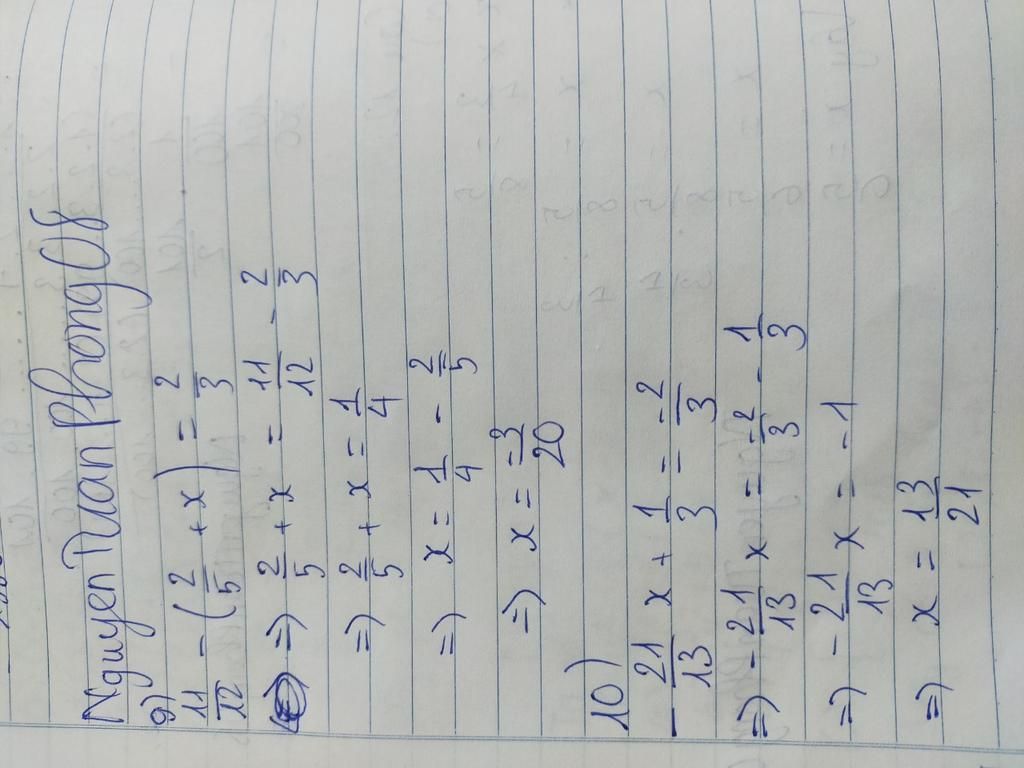 Nguyen Tuan Phong 08
9)
11/12 - (2/5 + x) = 2/3
=> 2/5 + x = 11/12 - 2/3
=> 2/5 + x = 1/4
=> x = 1/4 - 2/5
=> x = -3/20
10)
- 21/13 x + 1/3 = -2/3
=> - 21/13 x = -2/3 - 1/3
=> - 21/13 x = -1
=> x = 13/21